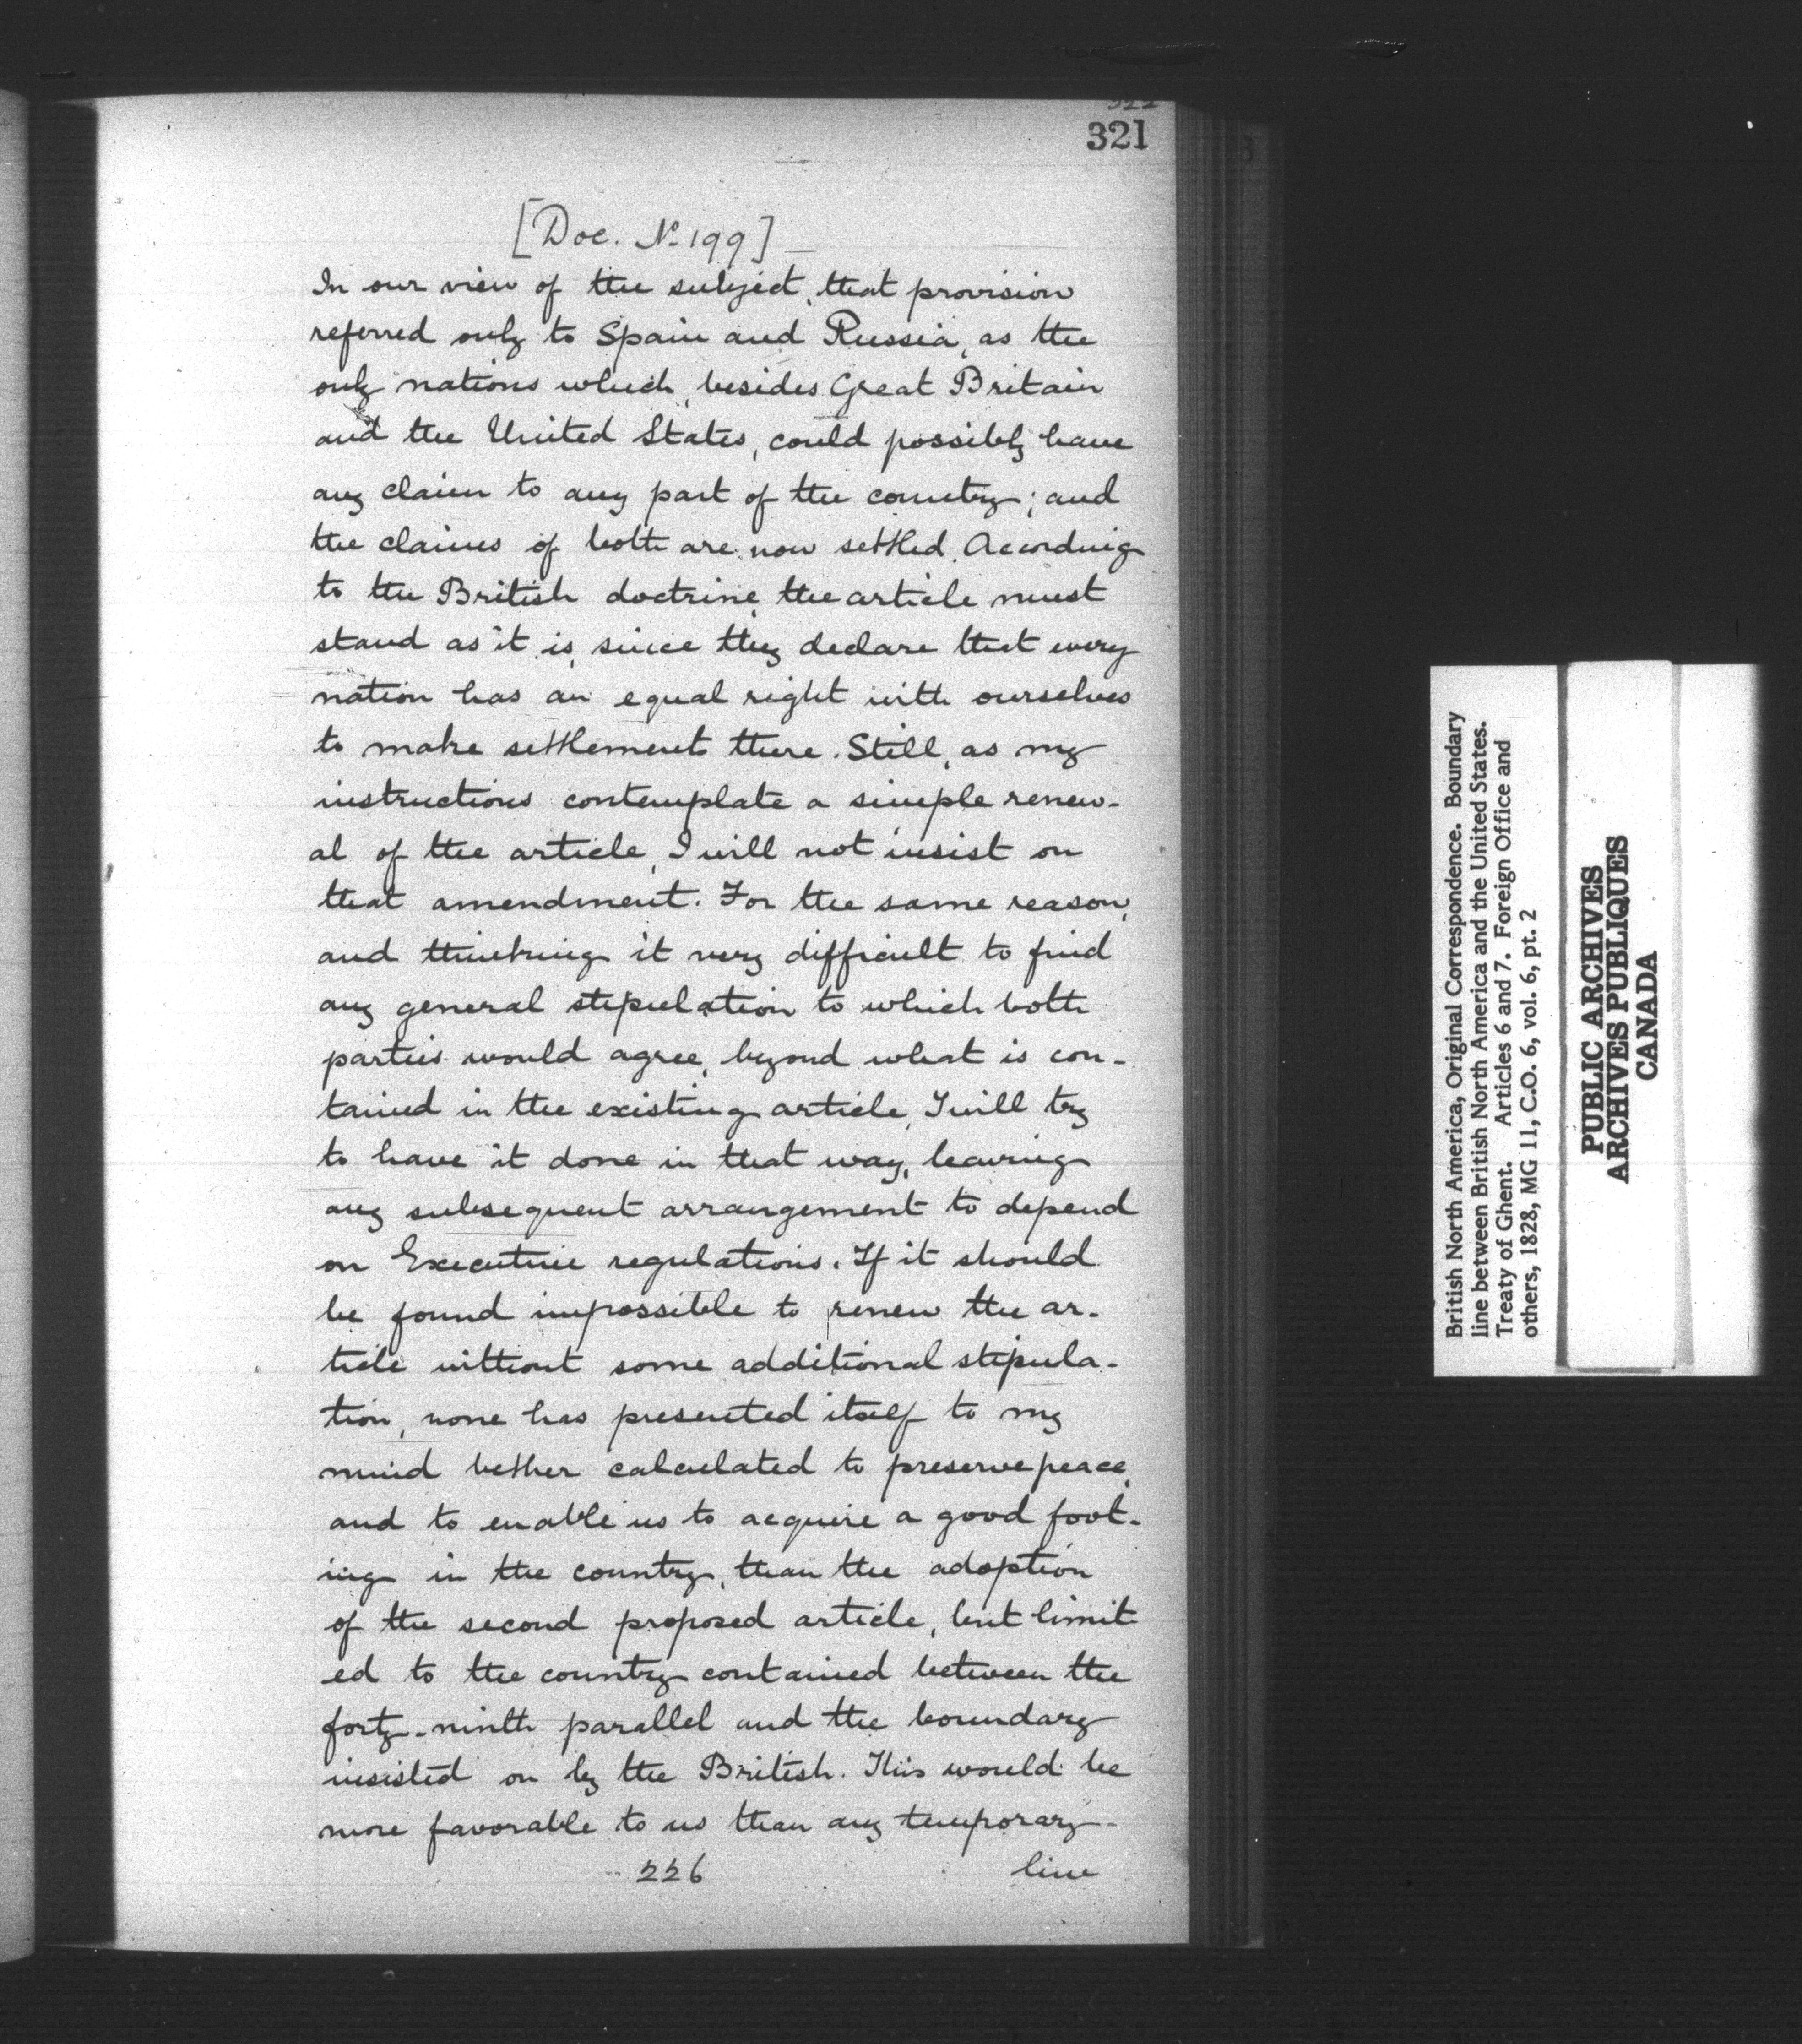 321
[Doc. No 199]
In our view of the subject, that provision
referred only to Spain and Russia, as the
only nations which, besides Great Britain
and the United States, could possibly have
any claim to any part of the country; and
the claims of both are now settled. According
to the British doctrine, the article must
stand as it is, since they declare that every
nation has an equal right with ourselves
to make settlements there. Still, as my
instructions contemplate a simple renew-
al of the article, I will not insist on
that amendment. For the same reason,
and thinking it very difficult to find
any general stipulation to which both
parties would agree, beyond what is con-
tained in the existing article, I will try
to have it done in that way, leaving
any subsequent arrangement to depend
on Executive regulations. If it should
be found impossible to renew the ar-
ticle without some additional stipula-
tion, none has presented itself to my
mind better calculated to preserve peace,
and to enable us to acquire a good foot-
ing in the country, than the adoption
of the second proposed article, but limit
ed to the country contained between the
forty-ninth parallel and the boundary
insisted on by the British. This would be
more favorable to us than any temporary-
226 line
British North America, Original Correspondence. Boundary
line between British North America and the United States.
Treaty of Ghent. Articles 6 and 7. Foreign Office and
others, 1828, MG 11, C.O. 6, vol. 6, pt. 2
PUBLIC ARCHIVES
ARCHIVES PUBLIQUES
CANADA